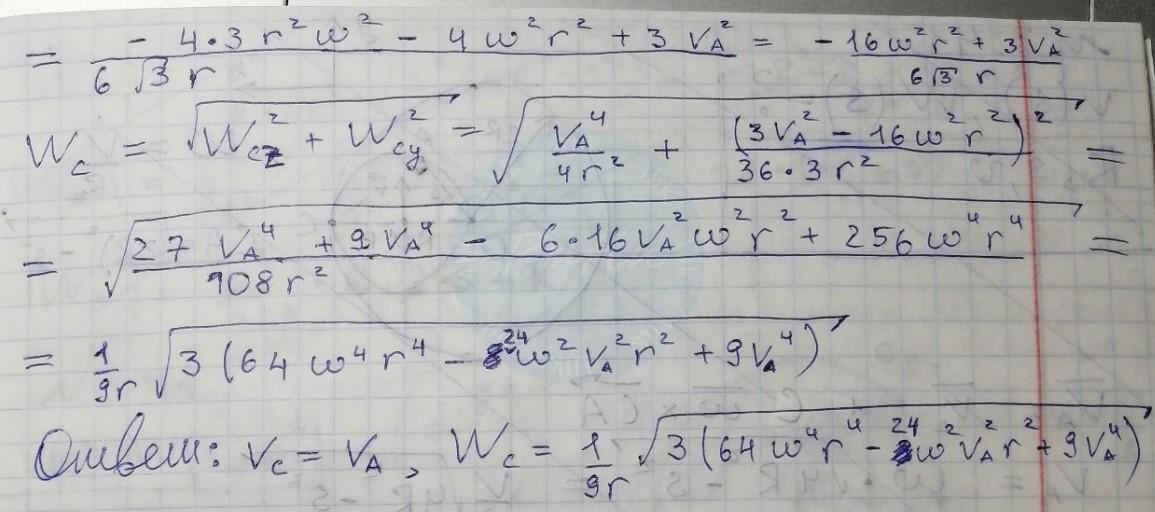 = (- 4·3 r²ω² - 4ω²r² + 3V_A²) / (6√3 r) = (-16ω²r² + 3V_A²) / (6√3 r)
W_c = √(W_cz² + W_cy²) = √(V_A⁴ / 4r² + (3V_A² - 16ω²r²)² / 36·3r²) =
= √((27 V_A⁴ + 9V_A⁴ - 6·16V_A²ω²r² + 256ω⁴r⁴) / 108r²) =
= 1/9r √(3(64ω⁴r⁴ - 24ω²V_A²r² + 9V_A⁴))
Ответ: V_c = V_A, W_c = 1/9r √(3(64ω⁴r⁴ - 24ω²V_A²r² + 9V_A⁴))